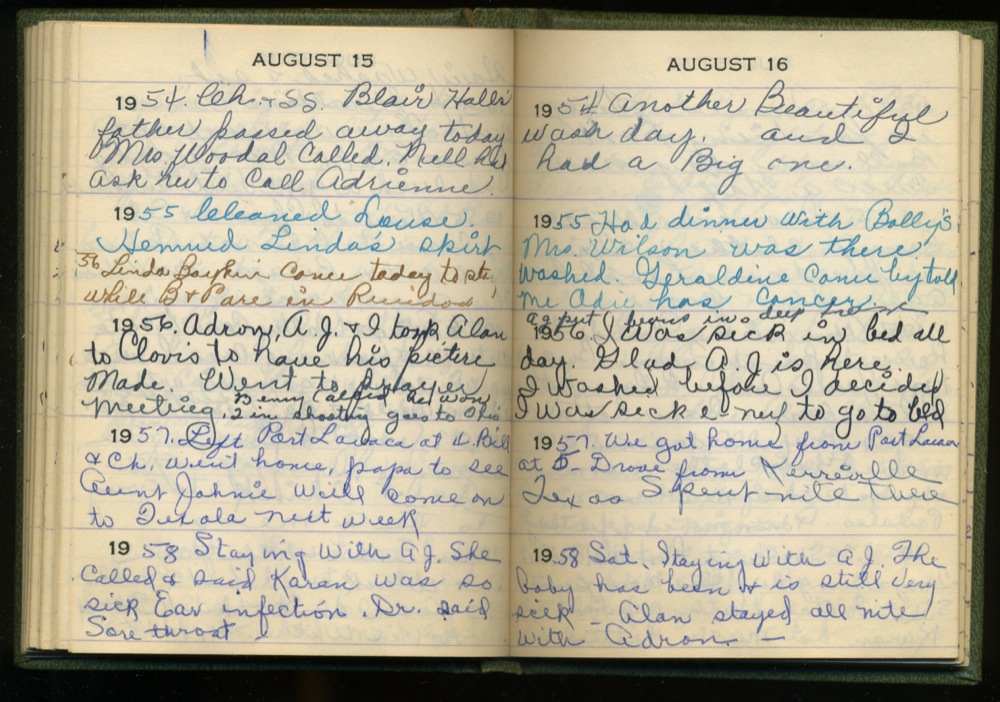 AUGUST 15
1954. Ch. + SS. Blair Halls
father passed away today
Mrs. Woodal Called. Nell had
ask her to Call Adrienne.
1955 Cleaned house.
Hemmed Lindas skirt
56 Linda Boykin Came today to stay
while B + P are in Ruidoso
1956. Adron, A.J. + I took Alan
to Clovis to have his picture
Made. Went to prayer
Meeting. Benny Called he won
2 in shooting goes to Ohio
1957. Left Port Lavaca at 4. Bill
& Ch. went home, papa to see
Aunt Johnie will come on
to Texola next week
1958 Staying With A J. She
Called & said Karan was so
sick Ear infection. Dr. said
Sore throat
AUGUST 16
1954 Another Beautiful
wash day. and I
had a Big one.
1955 Had dinner with Bolly's
Mrs. Wilson was there
Washed. Geraldine Came by told
me Adie has Cancer.
A.J. put in deep
1956. I Was sick in bed all
day. Glad A.J. is here.
I Washed before I decided
I Was sick e nef to go to bed
1957. We got home from Port Lavaca
at 5- Drove from Kerrville
Texas Spent nite there
1958 Sat. Staying With A J. The
baby has been & is still Very
sick - Alan stayed all nite
With Adron -